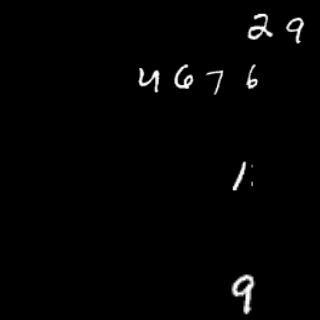 29
4676
1
9